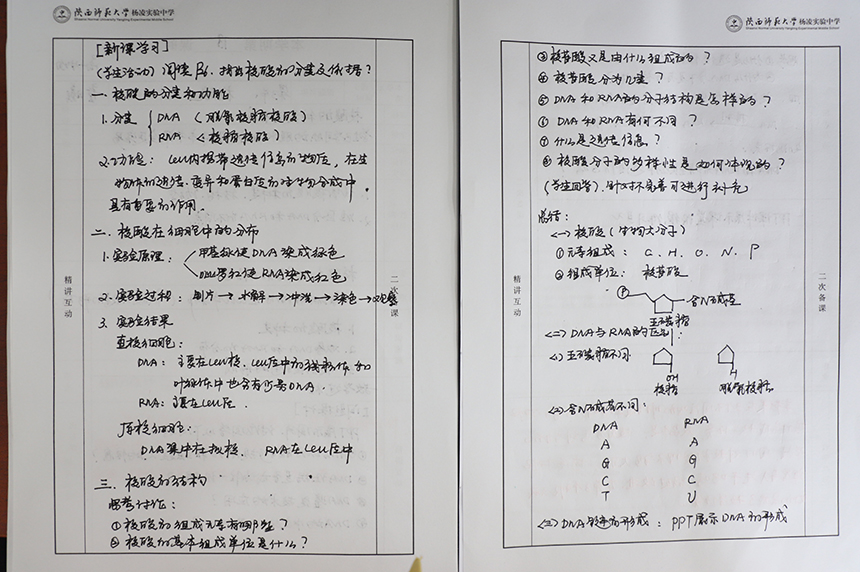 陕西师范大学 杨凌实验中学
Shaanxi Normal University Yangling Experimental Middle School
[新课学习]
(学生活动) 阅读P26, 指出核酸的分类及依据？
一. 核酸的分类和功能
1. 分类 { DNA (脱氧核糖核酸)
RNA (核糖核酸)
2. 功能: cell内携带遗传信息的物质, 在生
物体的遗传、变异和蛋白质的生物合成中
具有重要的作用.
二. 核酸在细胞中的分布
1. 实验原理: 甲基绿使DNA染成绿色
吡罗红使RNA染成红色
2. 实验过程: 制片→水解→冲洗→染色→观察
3. 实验结果
真核细胞:
DNA: 主要在cell核, cell质中的线粒体和
叶绿体中也含有少量DNA.
RNA: 主要在cell质.
原核细胞:
DNA集中在拟核. RNA在cell质中
三. 核酸的结构
思考讨论:
① 核酸的组成元素有哪些？
② 核酸的基本组成单位是什么？
精讲互动
二次备课
陕西师范大学 杨凌实验中学
Shaanxi Normal University Yangling Experimental Middle School
③ 核苷酸又是由什么组成的？
④ 核苷酸分为几类？
⑤ DNA和RNA的分子结构是怎样的？
⑥ DNA和RNA有何不同？
⑦ 什么是遗传信息？
⑧ 核酸分子的多样性是如何体现的？
(学生回答), 针对不完善可进行补充
总结:
<一> 核酸 (生物大分子)
① 元素组成: C. H. O. N. P
② 组成单位: 核苷酸
P 含N碱基
五碳糖
<二> DNA与RNA的区别:
<1> 五碳糖不同
OH H
核糖 脱氧核糖
<2> 含N碱基不同:
DNA RNA
A A
G G
C C
T U
<三> DNA的形成: PPT展示DNA的形成
精讲互动
二次备课